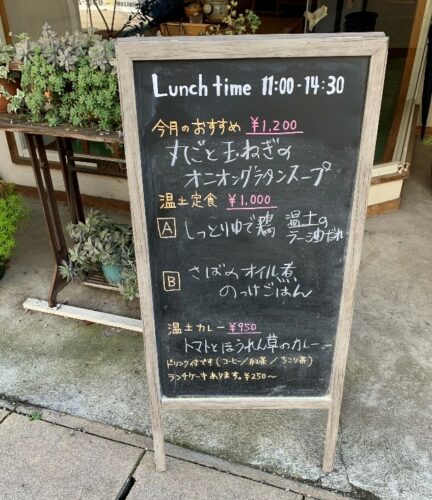 Lunch time 11:00-14:30
今月のおすすめ ¥1,200
丸ごと玉ねぎの
オニオングラタンスープ
温土定食 ¥1,000
A しっとりゆで鶏 温土の
ラー油だれ
B さばのオイル煮
のっけごはん
温土カレー ¥950
トマトとほうれん草のカレー
ドリンク付です(コーヒー/紅茶/ちこり茶)
ランチケーキあります。¥250~